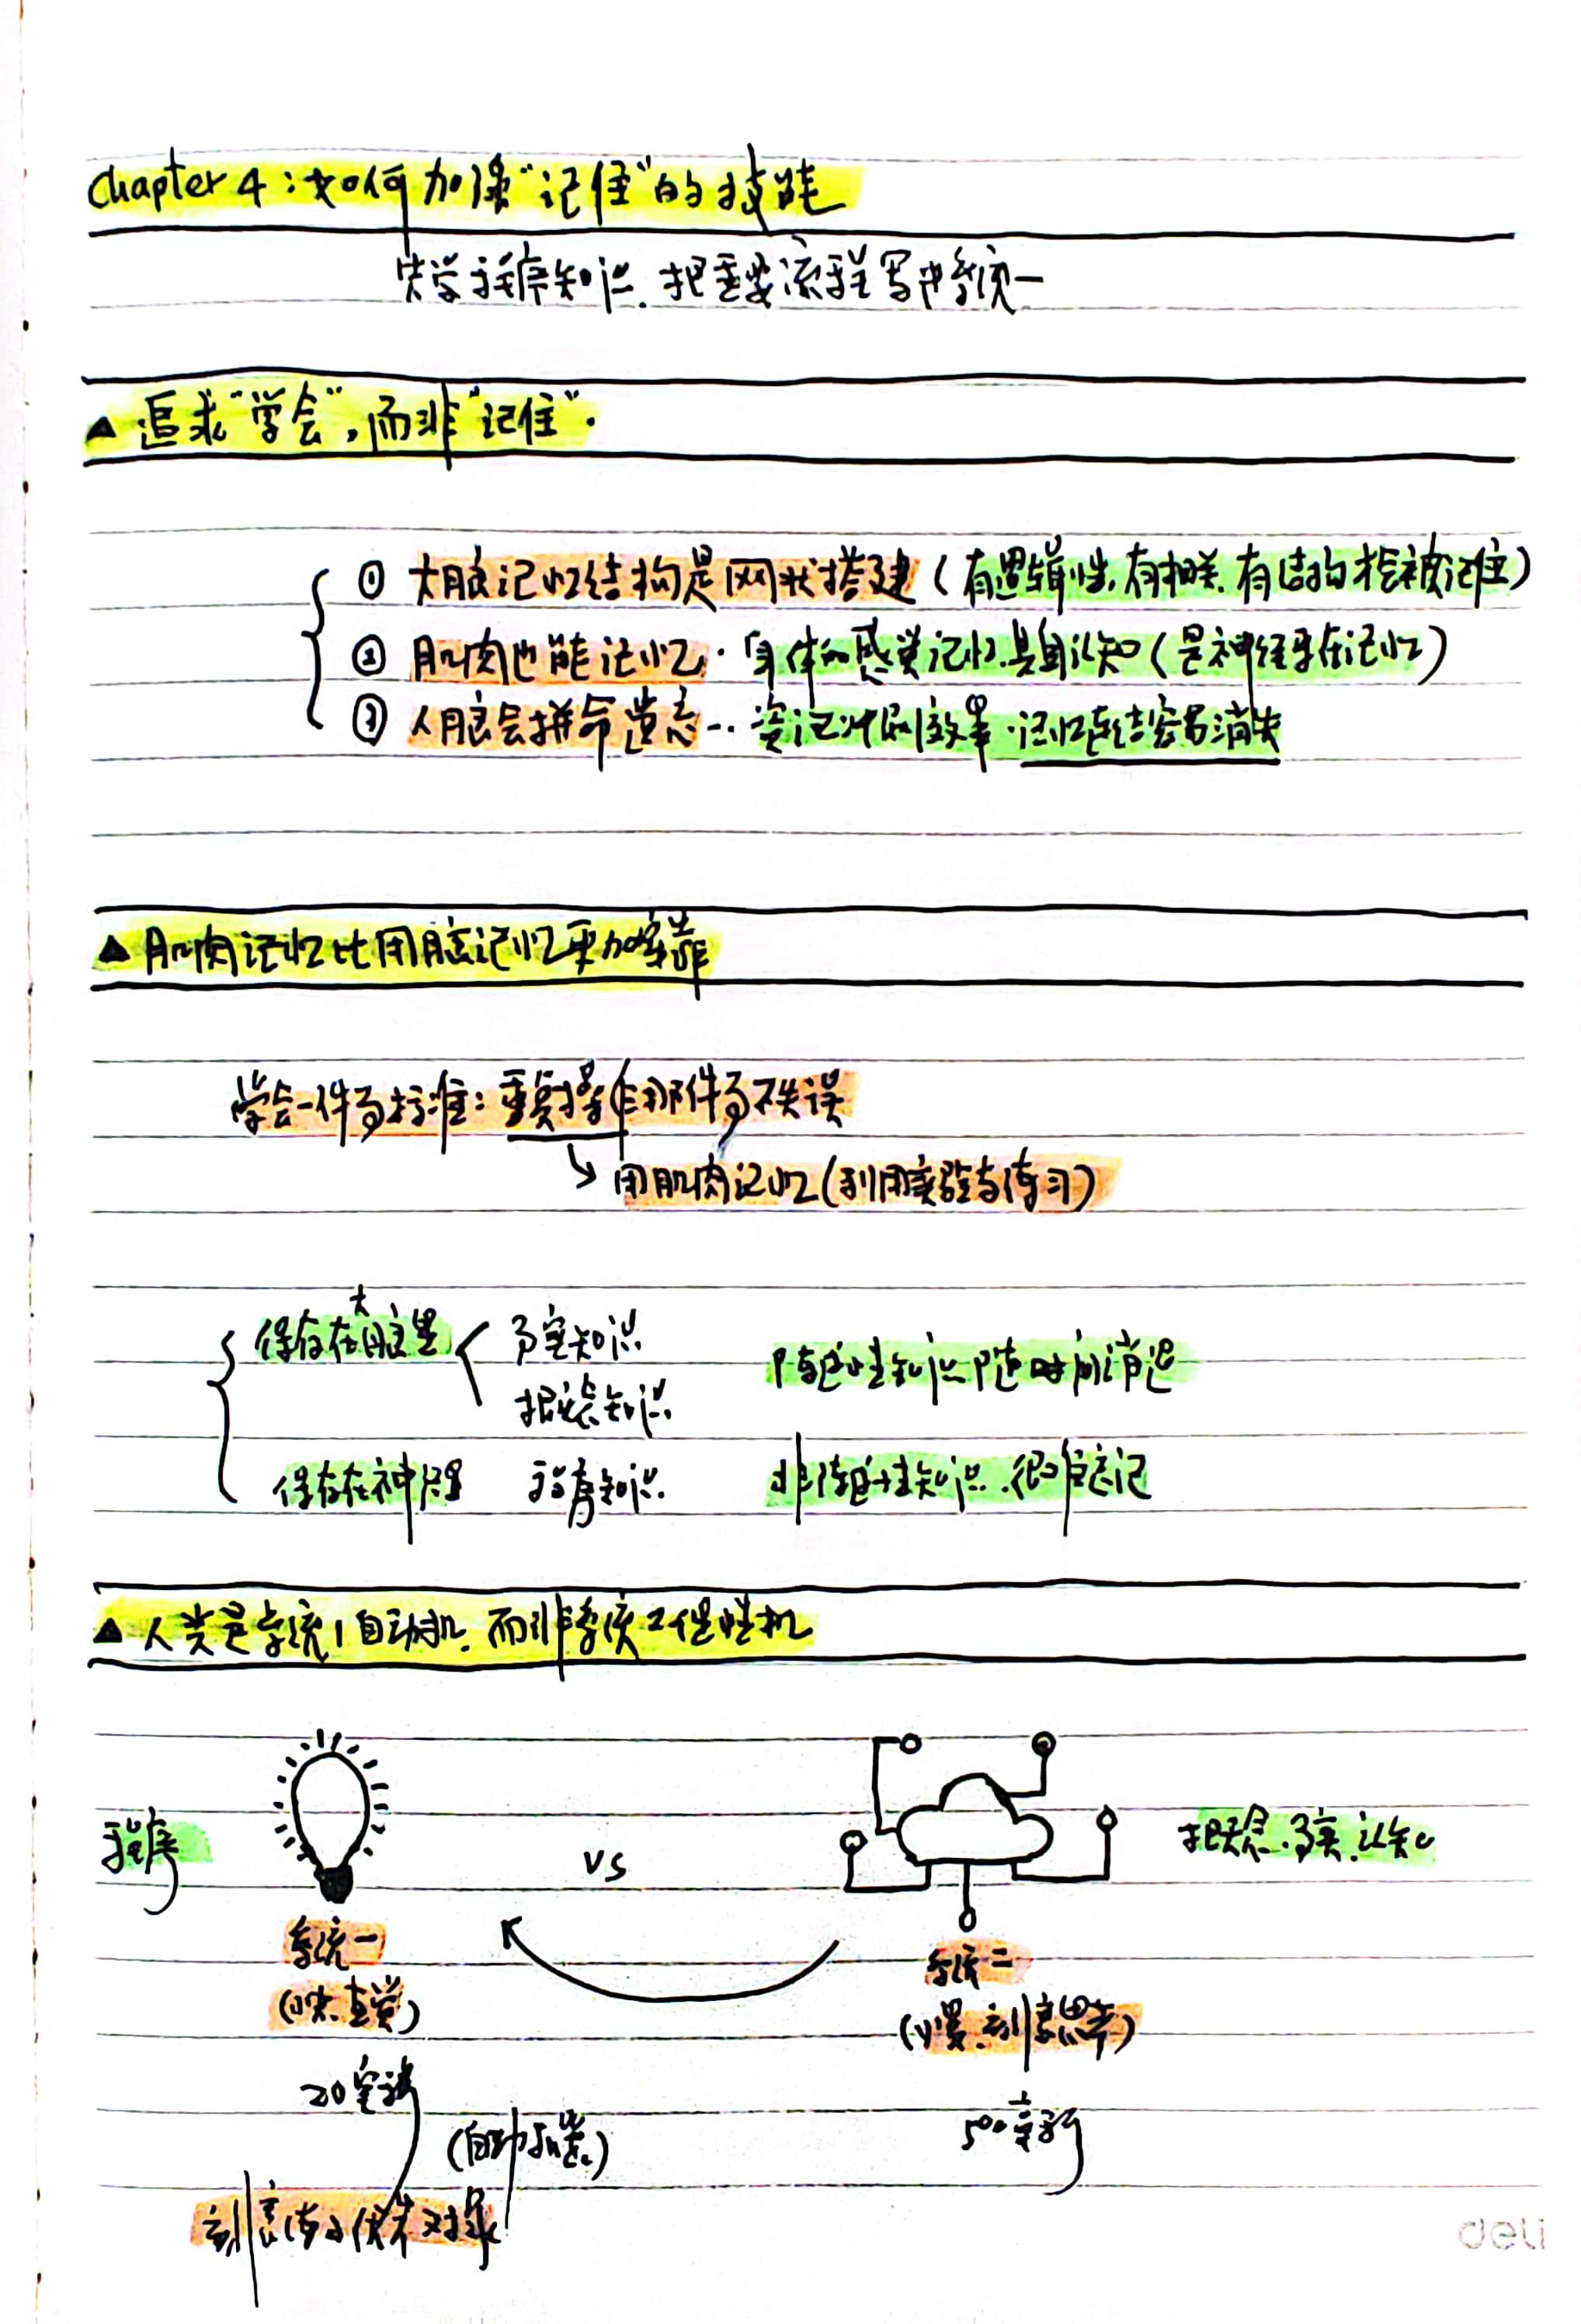 Chapter 4:如何加深"记住"的技能
先学程序知识.把重要流程写中系统一
▲ 追求"学会",而非"记住".
① 大脑记忆结构是网状搭建(有逻辑性.有相关.有结构才能被记住)
② 肌肉也能记忆.身体的感觉记忆.具身认知(是神经系在记忆)
③ 人脑会拼命遗忘..资讯冲刷效率.记忆连结容易消失
▲ 肌肉记忆比用脑记忆更加牢靠
学会一件事标准:重复操作那件事不失误
↘ 用肌肉记忆(利用实验与练习)
保存在大脑里 事实知识 陈述性知识 随时间消退
概念知识
保存在神经里 程序知识 非陈述性知识.很难忘记
▲ 人类是系统1自动机.而非系统2理性机
程序 vs 概念.事实.认知
系统一 系统二
(快.直觉) (慢.刻意思考)
20毫秒 500毫秒
(自动加送)
刻意练习
deli